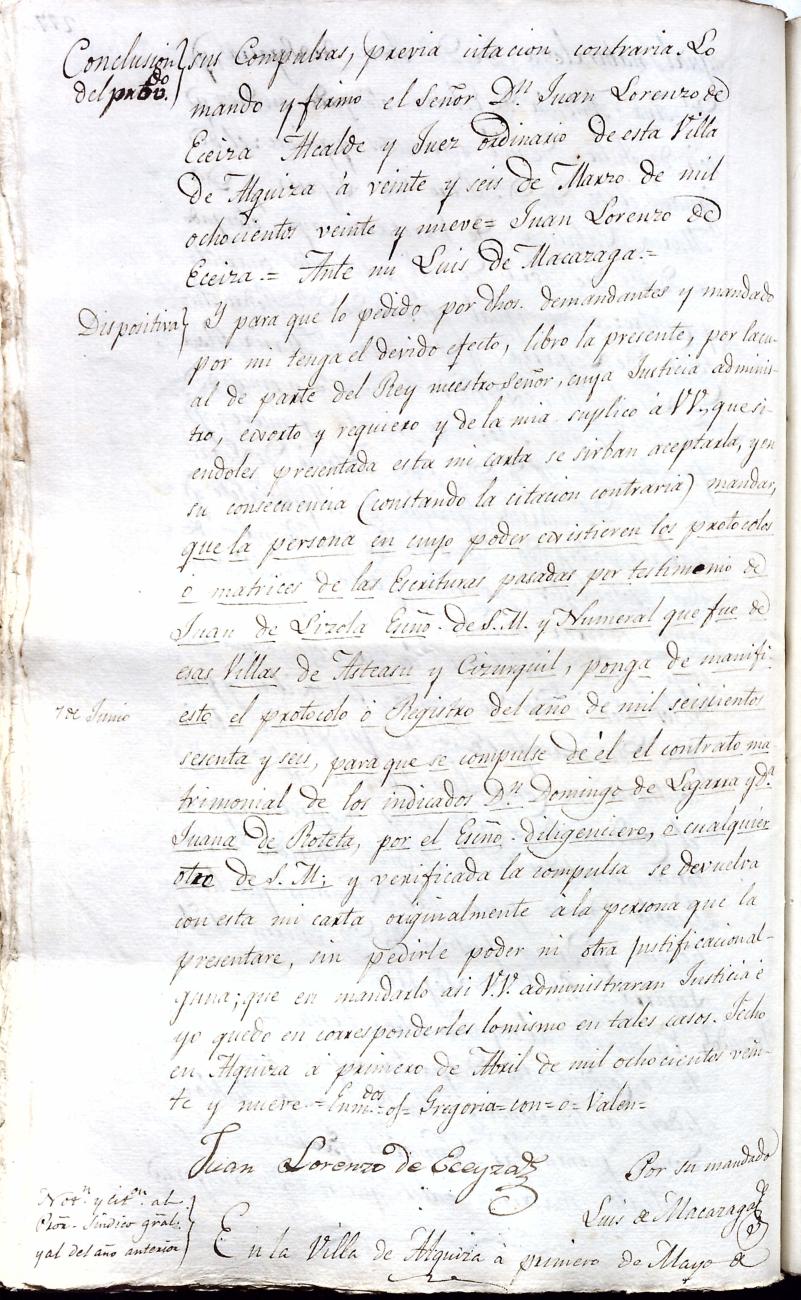 Conclusion
del prov.do
sus Compulsas, previa citacion contraria. Lo
mando y firmo el Señor Dn. Juan Lorenzo de
Eceiza Alcalde y Juez ordinario de esta Villa
de Alquiza à veinte y seis de Marzo de mil
ochocientos veinte y nueve = Juan Lorenzo de
Eceiza = Ante mi Luis de Macazaga =
Dispositiva
Y para que lo pedido por dhos. demandantes y mandado
por mi tenga el devido efecto, libro la presente, por la cu-
al de parte del Rey nuestro Señor, cuya Justicia adminis-
tro, exorto y requiero y de la mia suplico à VV. que si-
endoles presentada esta mi carta se sirban aceptarla, y en
su consecuencia (constando la citacion contraria) mandar,
que la persona en cuyo poder existieren los protocolos
ò matrices de las Escrituras pasadas por testimonio de
Juan de Lizola Esño. de S. M. y Numeral que fue de
esas Villas de Asteasu y Cizurquil, ponga de manifi-
7 de Junio
esto el protocolo ò Registro del año de mil seiscientos
sesenta y seis, para que se compulse de él el contrato ma-
trimonial de los indicados Dn. Domingo de Legarra y Da.
Juana de Roteta, por el Esño. diligenciero, ò cualquier
otro de S. M; y verificada la compulsa se devuelva
con esta mi carta originalmente à la persona que la
presentare, sin pedirle poder ni otra justificacion al-
guna; que en mandarlo asi V.V. administraran Justicia è
yo quedo en corresponderles lo mismo en tales casos. Fecho
en Alquiza à primero de Abril de mil ochocientos vein-
te y nueve = Enm.dos = os = Gregoria = con = o = Valen =
Juan Lorenzo de Eceyza
Por su mandado
Luis de Macazaga
Not.n y cit.n al
Pror. Sindico gral.
y al del año anterior
En la Villa de Alquiza à primero de Mayo de